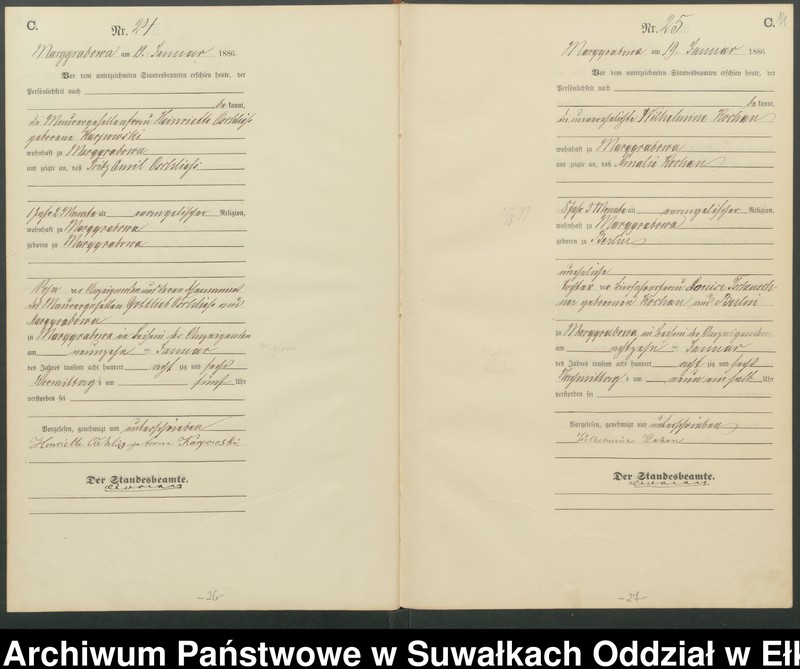 C.
Nr. 24
Marggrabowa am 19. Januar 1886.
Vor dem unterzeichneten Standesbeamten erschien heute, der
Persönlichkeit nach
be kannt,
die Maurergesellenfrau Heinriette
geborene Karpowski
wohnhaft zu Marggrabowa
und zeigte an, daß Fritz Emil
1 Jahr 2 Monate alt evangelischer Religion,
wohnhaft zu Marggrabowa
geboren zu Marggrabowa
Sohn der Anzeigenden und deren
des Maurergesellen Gottlieb
Marggrabowa
zu Marggrabowa im Beisein der Anzeigenden
am neunzehn - Januar
des Jahres tausend acht hundert acht zig und sechs
Vormittags um fünf Uhr
verstorben sei
Vorgelesen, genehmigt und unterschrieben
Henriette geborene Karpowski
Der Standesbeamte.
-26-
C.
Nr. 25
Marggrabowa am 19. Januar 1886.
Vor dem unterzeichneten Standesbeamten erschien heute, der
Persönlichkeit nach
be kannt,
die unverehelichte Wilhelmine Kochan
wohnhaft zu Marggrabowa
und zeigte an, daß Amalie Kochan
8 Jahr 3 Monate alt evangelischer Religion,
wohnhaft zu Marggrabowa
geboren zu Berlin
uneheliche
Tochter der Louise
geborenen Kochan aus Berlin
zu Marggrabowa im Beisein der Anzeigenden
am achtzehn - Januar
des Jahres tausend acht hundert acht zig und sechs
Nachmittags um neun einhalb Uhr
verstorben sei
Vorgelesen, genehmigt und unterschrieben
Wilhelmine
Der Standesbeamte.
-27-
Archiwum Państwowe w Suwałkach Oddział w Eł